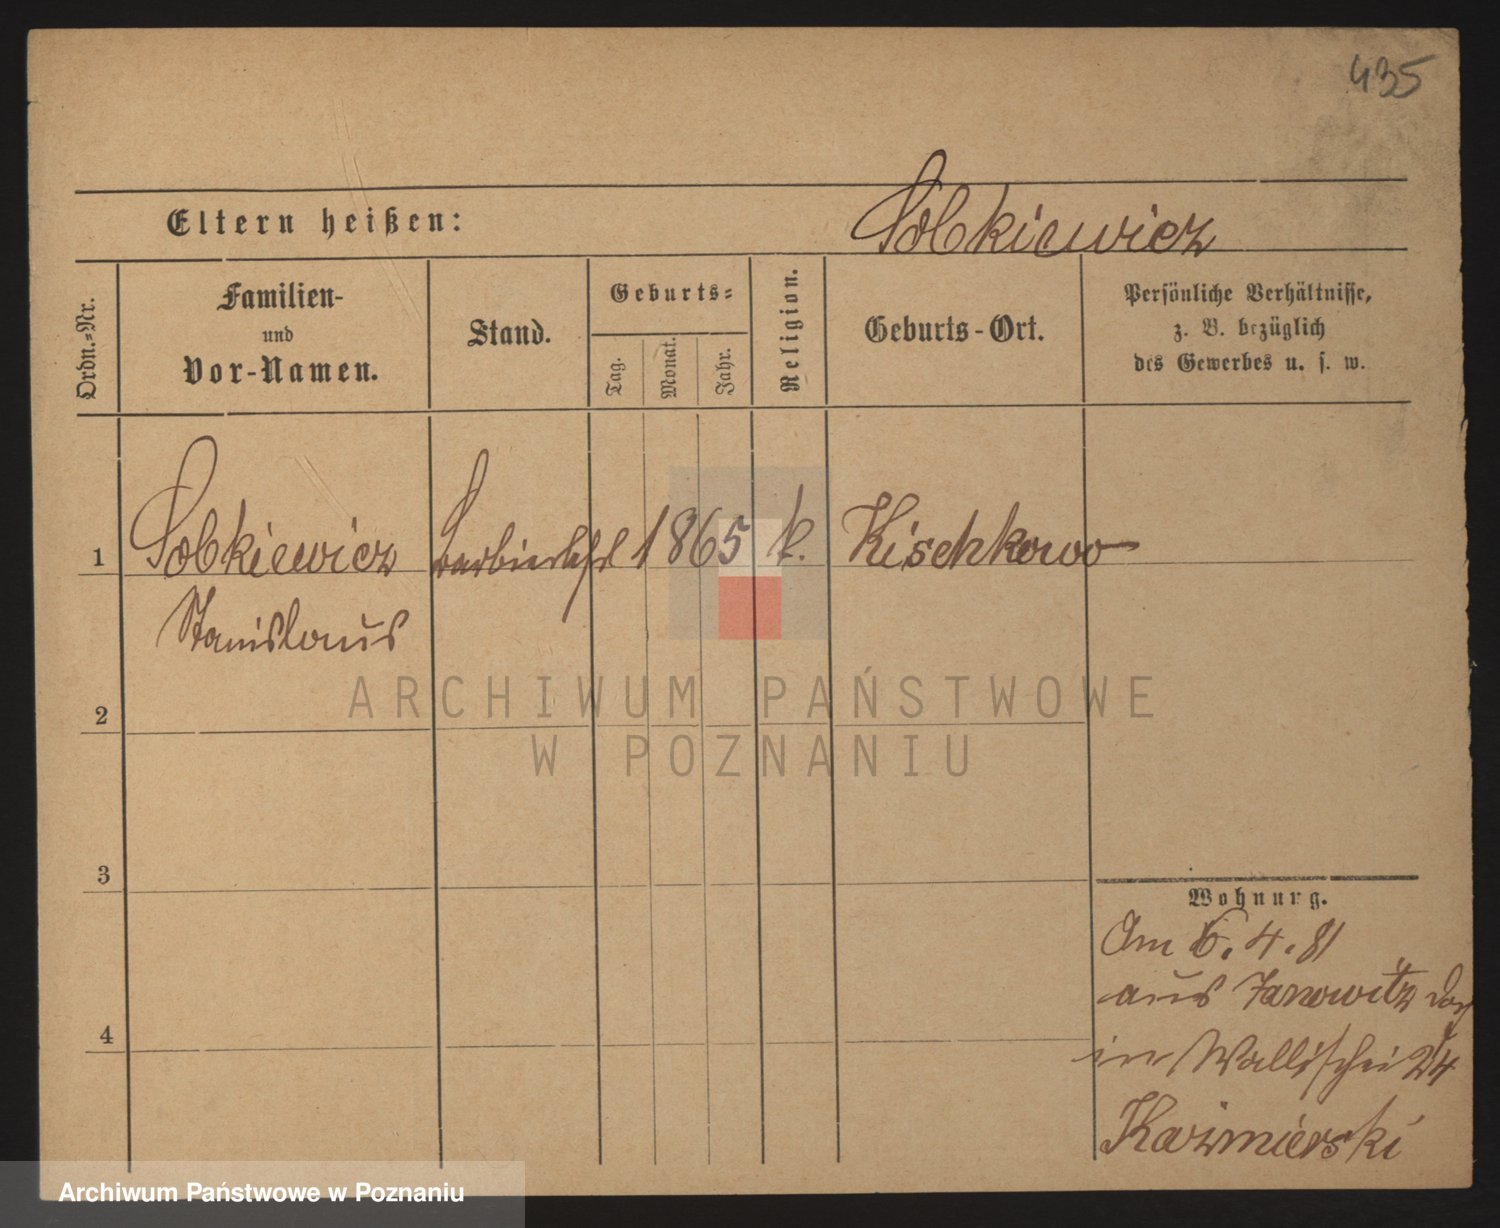 435
Eltern heißen:
Sobkiewicz
Ordn.-Nr.
Familien-
und
Vor-Namen.
Stand.
Geburts-
Tag.
Monat.
Jahr.
Religion.
Geburts-Ort.
Persönliche Verhältnisse,
z. B. bezüglich
des Gewerbes u. s. w.
1 Sobkiewicz Barbierlehrl 1865 k. Kischkowo
Stanislaus
2
3
4
Wohnung.
Am 6. 4. 81
aus Janowitz
in Wallischei 24
Kazmierski
ARCHIWUM PAŃSTWOWE
W POZNANIU
Archiwum Państwowe w Poznaniu